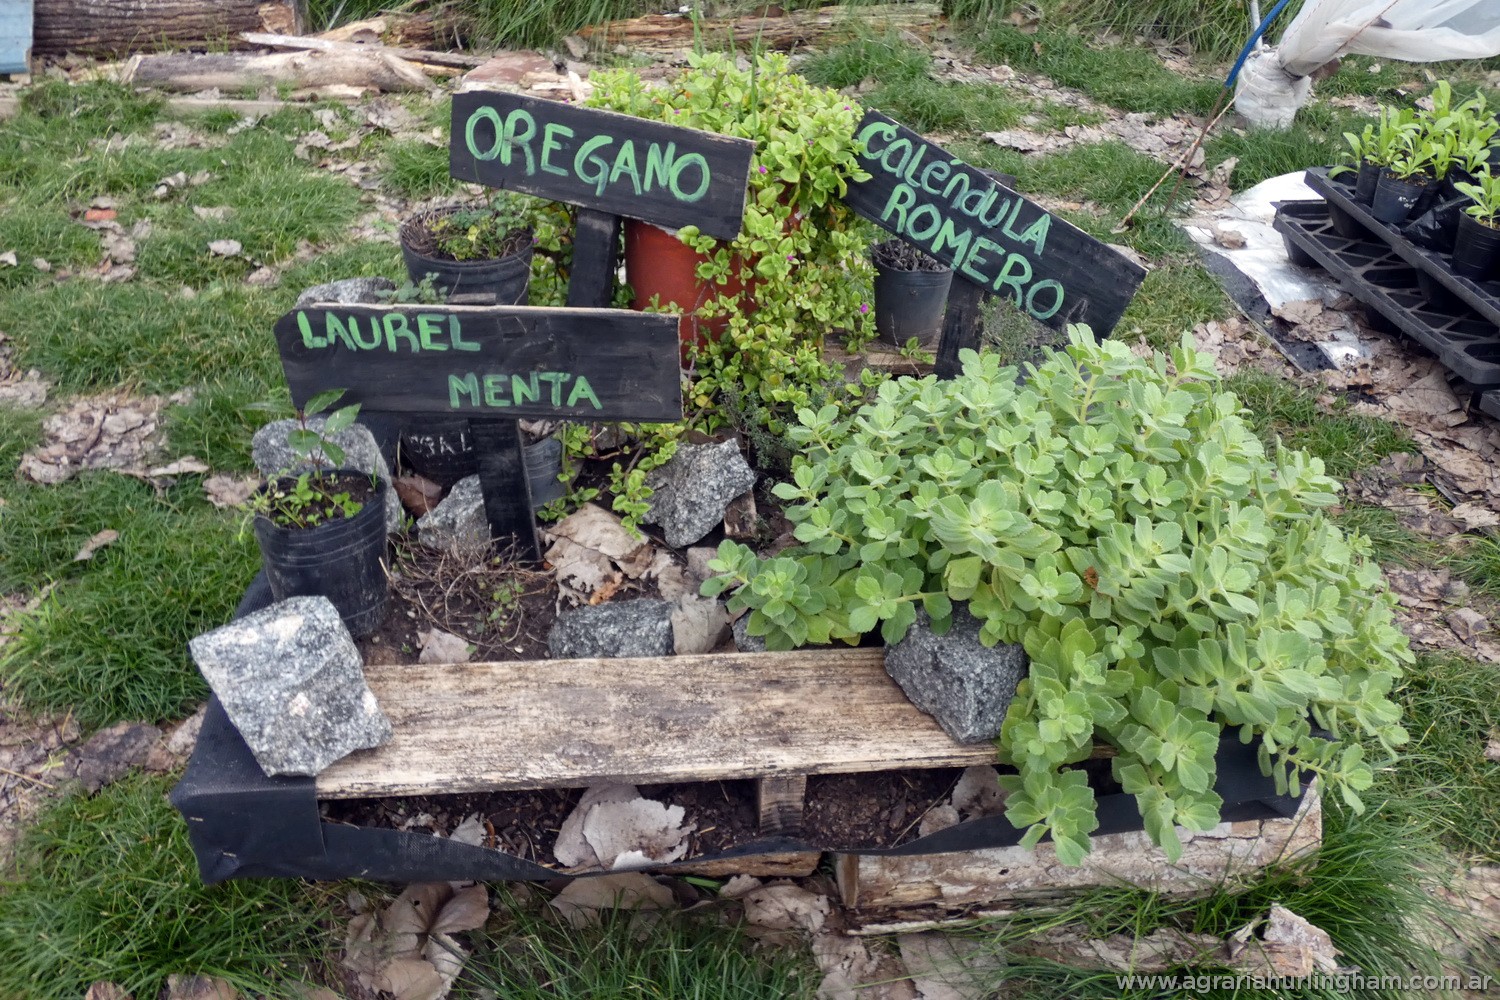 OREGANO
CaléNdULA
ROMERO
LAUREL
MENTA
www.agrariahurlingham.com.ar